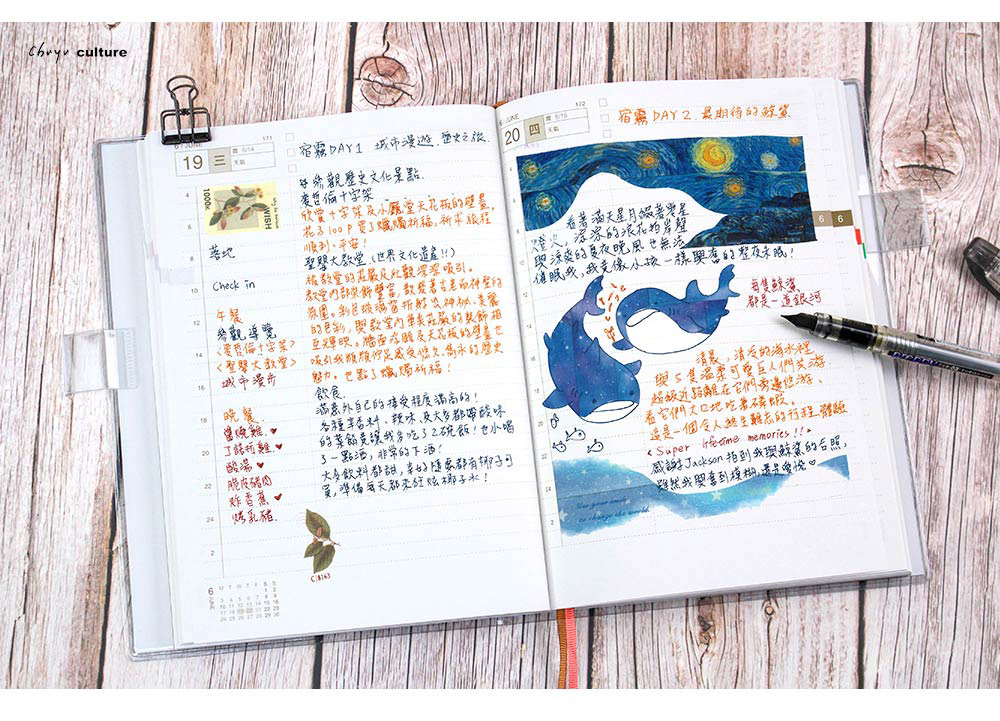 Chuyu culture
6月JUNE
171
19 三
農 5/14
天氣
宿霧DAY1 城市漫遊 歷史之旅.
4
6
8
10
12
14
16
18
20
22
24
2
1000c
WISH
落地
Check in
午餐
參觀導覽
<麥哲倫十字架>
<聖嬰大教堂>
城市漫步
晚餐
醬燒雞.♥
丁骨排雞.♥
酸湯♥
脆皮豬肉
炸香蕉♥
烤乳豬.
參觀歷史文化景點.
麥哲倫十字架
欣賞十字架及小廳堂天花板的壁畫
花了100P買了蠟燭祈福,祈求旅程
順利、平安!
聖嬰大教堂(世界文化遺產!!)
被教堂的莊嚴及壯觀深深吸引。
教堂內部裝飾豐富,散發著古老而神聖的
氛圍。彩色玻璃窗折射出神秘、美麗
的色彩,與教堂內華美莊嚴的裝飾相
互輝映。牆面浮雕及天花板的壁畫也
吸引我細細佇足感受悠久、雋永的歷史
魅力。也點了蠟燭祈福!
飲食.
滿意外自己的接受程度滿高的!
各種辛香料、辣味,及大多都帶酸味
的菜餚竟讓我多吃了2碗飯!也小喝
了一點酒,非常的下酒!
大多飲料都甜,幸好隨處都有椰子可
買,準備每天都來狂炫椰子水!
C|8163
6 JUNE
M T W T F S S
1 2
3 4 5 6 7 8 9
10 11 12 13 14 15 16
17 18 19 20 21 22 23
24 25 26 27 28 29 30
6月JUNE
172
20 四
農 5/15
天氣
宿霧DAY2.最期待的鯨鯊
看著滿天星月綴著熒星
燈火,涼涼的浪花拍岸聲
與涼爽的夏夜晚風也無法
催眠我,我竟像小孩一樣興奮的整夜未眠!
每隻鯨鯊
都是一道銀河
清晨,清友的海水裡
與5隻溫柔可愛巨人們共游.
超級近距離在它們旁邊悠游、
看它們大口地吃著磷蝦。
這是一個令人終生難忘的行程、體驗
<Super lifetime memories!!>
感謝Jackson拍到我與鯨鯊的合照,
雖然我興奮到模糊,還是會悅♡
Use your smile
to change the world.
6 6
PREPPY